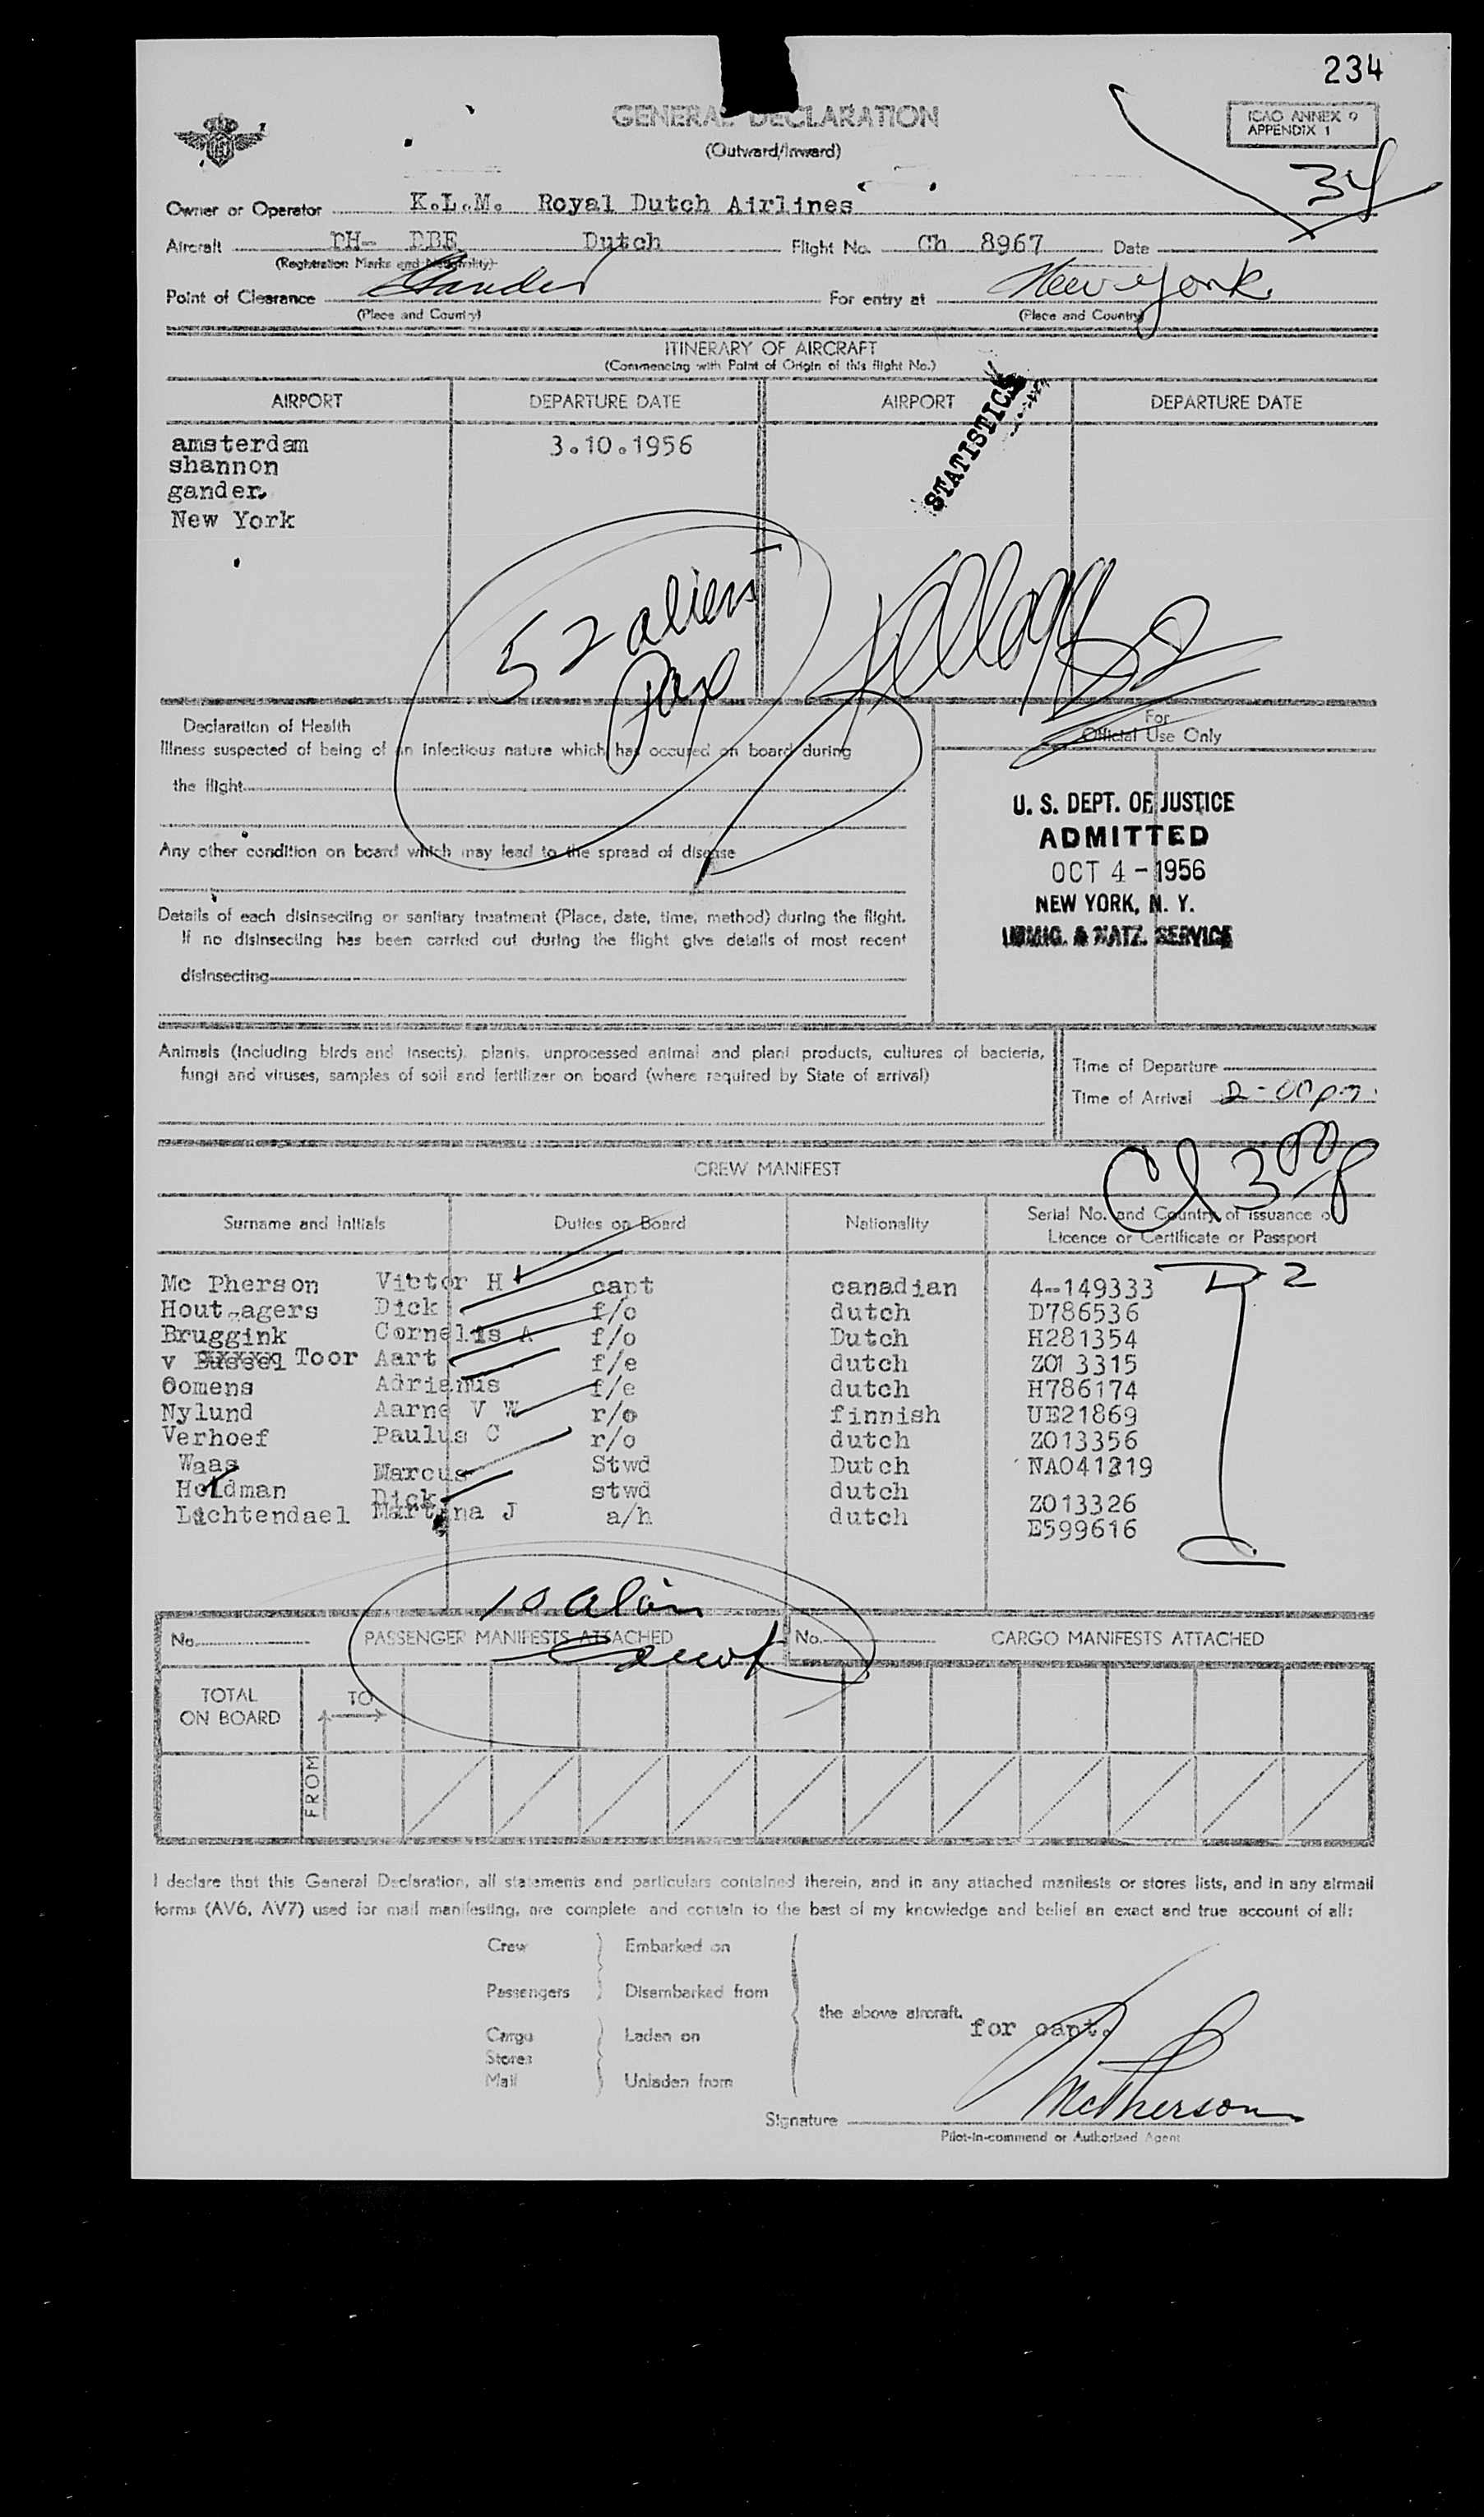 234
GENERAL DECLARATION
(Outward/Inward)
ICAO ANNEX 9
APPENDIX 1
34
Owner or Operator K.L.M. Royal Dutch Airlines
Aircraft PH- DBE Dutch Flight No. Ch 8967 Date
(Registration Marks and Nationality)
Point of Clearance Gander For entry at New York
(Place and Country) (Place and Country)
ITINERARY OF AIRCRAFT
(Commencing with Point of Origin of this flight No.)
AIRPORT DEPARTURE DATE AIRPORT DEPARTURE DATE
STATISTICS
amsterdam 3.10.1956
shannon
gander.
New York
52 aliens
Pax
Declaration of Health
Illness suspected of being of an infectious nature which has occured on board during
the flight
For
Official Use Only
Any other condition on board which may lead to the spread of disease
U. S. DEPT. OF JUSTICE
ADMITTED
OCT 4 - 1956
NEW YORK, N. Y.
IMMIG. & NATZ. SERVICE
Details of each disinsecting or sanitary treatment (Place, date, time, method) during the flight.
If no disinsecting has been carried out during the flight give details of most recent
disinsecting
Animals (including birds and insects), plants, unprocessed animal and plant products, cultures of bacteria,
fungi and viruses, samples of soil and fertilizer on board (where required by State of arrival)
Time of Departure
Time of Arrival 2-00 pm
CREW MANIFEST
Surname and Initials Duties on Board Nationality Serial No. and Country of issuance of
Licence or Certificate or Passport
Mc Pherson Victor H capt canadian 4-149333
Hout agers Dick f/o dutch D786536
Bruggink Cornelis A f/o Dutch H281354
v Toor Aart f/e dutch Z013315
Oomens Adrianus f/e dutch H786174
Nylund Aarne V W r/o finnish UE21869
Verhoef Paulus C r/o dutch Z013356
Waas Marcus Stwd Dutch NA041219
Holdman Dick stwd dutch Z013326
Lichtendael Martina J a/h dutch E599616
D-2
10 alien
crew
No. PASSENGER MANIFESTS ATTACHED No. CARGO MANIFESTS ATTACHED
TOTAL
ON BOARD
TO
FROM
I declare that this General Declaration, all statements and particulars contained therein, and in any attached manifests or stores lists, and in any airmail
forms (AV6, AV7) used for mail manifesting, are complete and contain to the best of my knowledge and belief an exact and true account of all:
Crew Embarked on
Passengers Disembarked from
the above aircraft. for capt.
Cargo Laden on
Stores
Mail Unladen from
Signature McPherson
Pilot-in-command or Authorized Agent